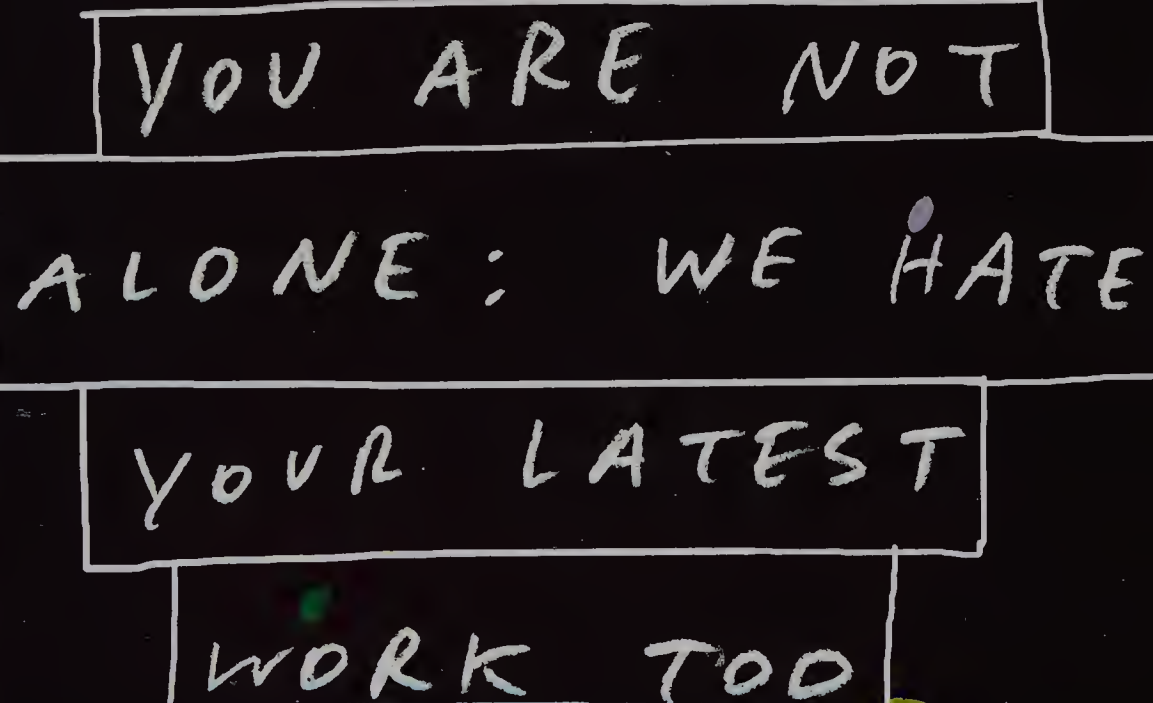 YOU ARE NOT
ALONE: WE HATE
YOUR LATEST
WORK TOO